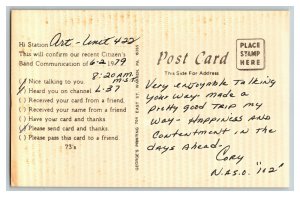 Hi Station Art - Unit 422
This will confirm our recent Citizen's
Band Communication of 6-2-1979
8:20 AM
M.S.T.
( ) Nice talking to you
( ) Heard you on channel L-37
( ) Received your card from a friend
( ) Received your name from a friend
( ) Have your card and thanks
( ) Please send card and thanks.
( ) Please pass this card to a friend
73's
GEORGE'S PRINTING
Post Card
This Side For Address
PLACE
STAMP
HERE
Very enjoyable talking
your way. Made a
pretty good trip my
way - Happiness and
Contentment in the
days ahead.
Cory
N.A.S.O. "112"